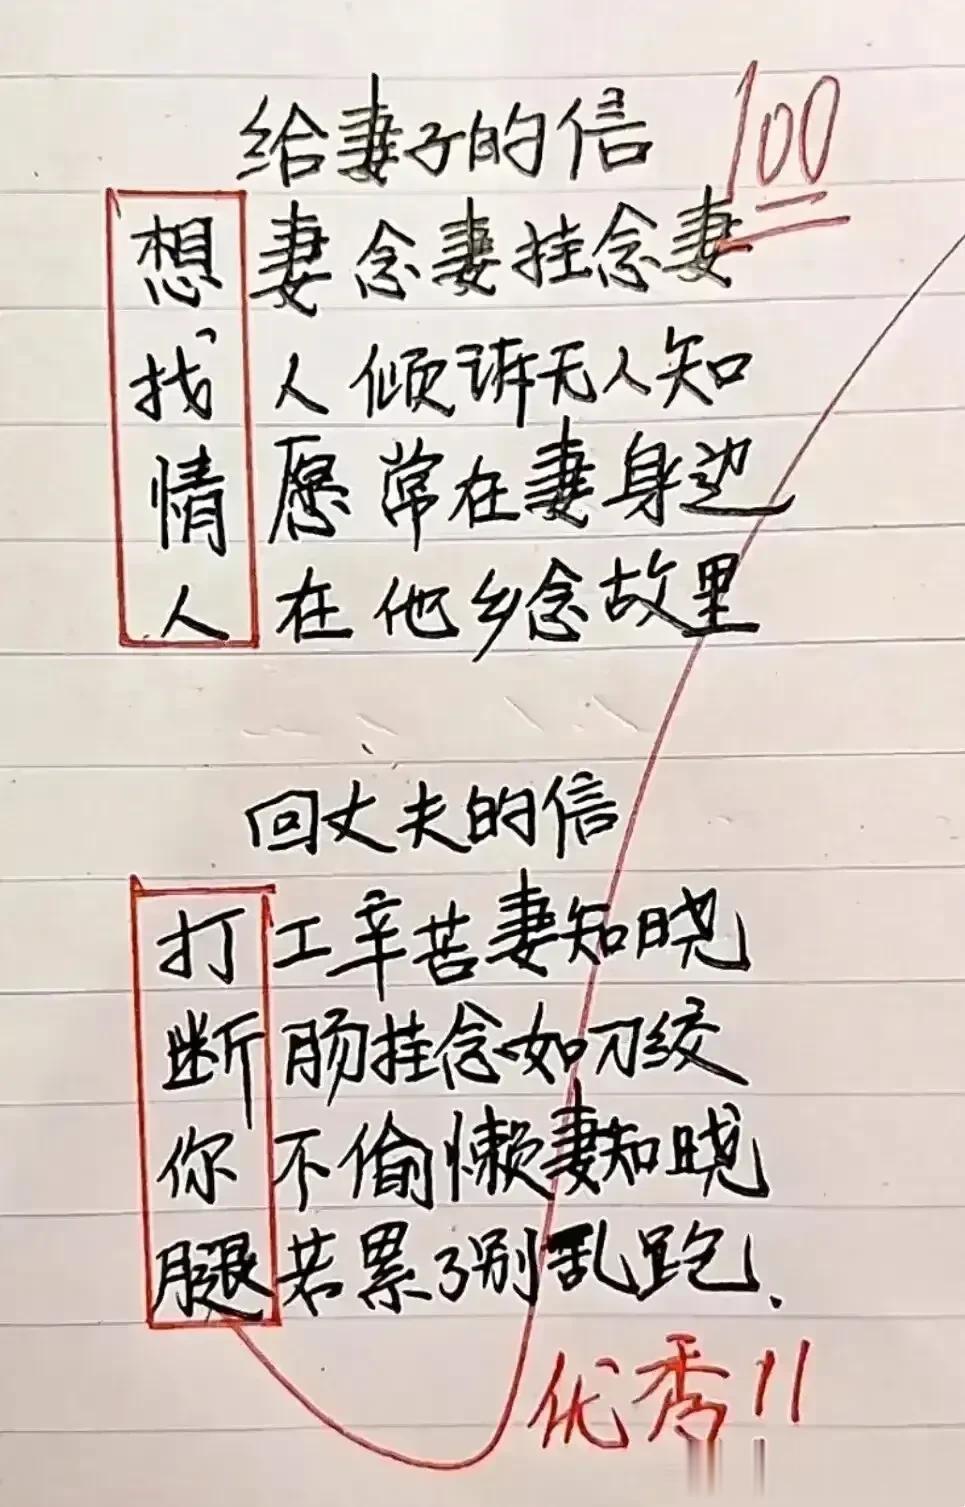 给妻子的信
100
想妻念妻挂念妻
找人倾诉无人知
情愿常在妻身边
人在他乡念故里
回丈夫的信
打工辛苦妻知晓
断肠挂念如刀绞
你不偷懒妻知晓
腿若累了别乱跑.
优秀!!